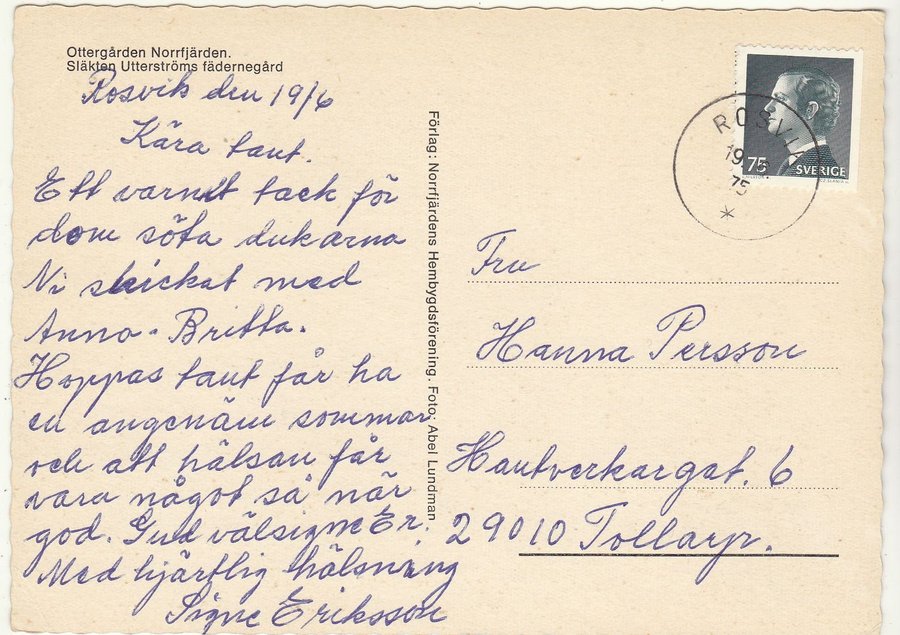 Ottergården Norrfjärden.
Släkten Utterströms fädernegård
Rosvik den 19/6
Kära tant.
Ett varmt tack för
dom söta dukarna
Ni skickat med
Anna-Britta.
Hoppas tant får ha
en angenäm sommar
och att hälsan får
vara något så när
god. Gud välsigne Er.
Med hjärtlig hälsning
Signe Eriksson
Förlag: Norrfjärdens Hembygdsförening. Foto: Abel Lundman
ROSVIK
19.6.
75
*
75
SVERIGE
Fru
Hanna Persson
Hantverkargat. 6
29010 Tollarp.